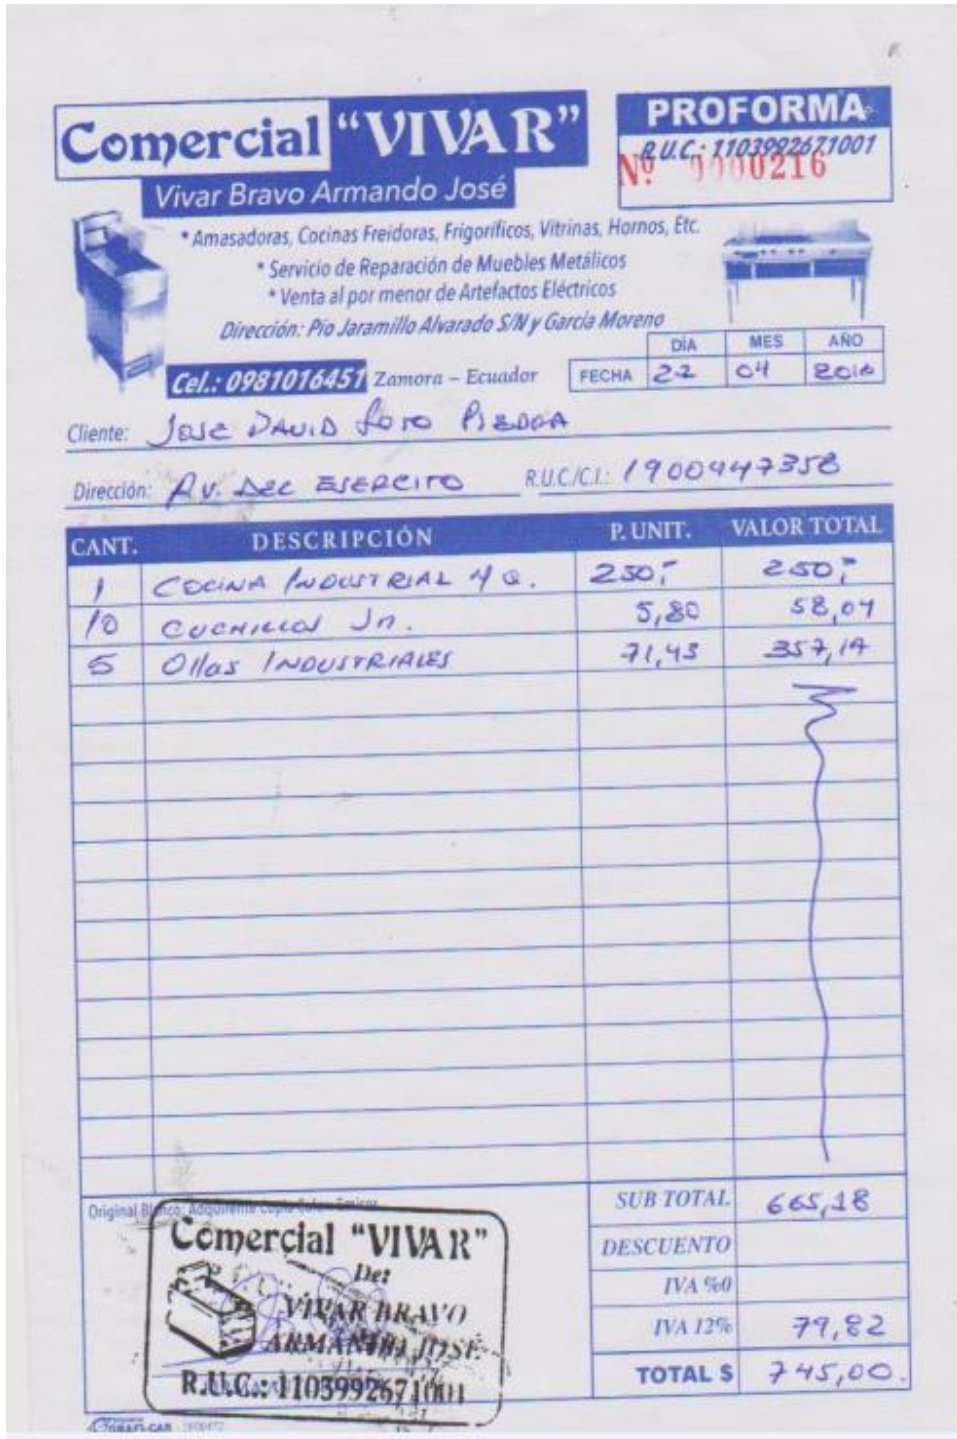 Comercial "VIVAR"
Vivar Bravo Armando José
PROFORMA
R.U.C.: 1103992671001
Nº 0000216
* Amasadoras, Cocinas Freidoras, Frigoríficos, Vitrinas, Hornos, Etc.
* Servicio de Reparación de Muebles Metálicos
* Venta al por menor de Artefactos Eléctricos
Dirección: Pio Jaramillo Alvarado S/N y García Moreno
Cel.: 0981016451 Zamora – Ecuador
DÍA MES AÑO
FECHA 22 04 2016
Cliente: JOSE DAVID SOTO PIEDRA
Dirección: AV. DEL EJERCITO R.U.C/C.I.: 1900447358
CANT. DESCRIPCIÓN P. UNIT. VALOR TOTAL
1 COCINA INDUSTRIAL 4 Q. 250,- 250,-
10 CUCHILLOS Jn. 5,80 58,04
5 Ollas INDUSTRIALES 71,43 357,14
Original Blanco: Adquirente Copia
SUB TOTAL 665,18
DESCUENTO
IVA %0
IVA 12% 79,82
TOTAL $ 745,00.
Comercial "VIVAR"
De:
VIVAR BRAVO
ARMANDO JOSE
R.U.C.: 1103992671001
GRAFI-CAR